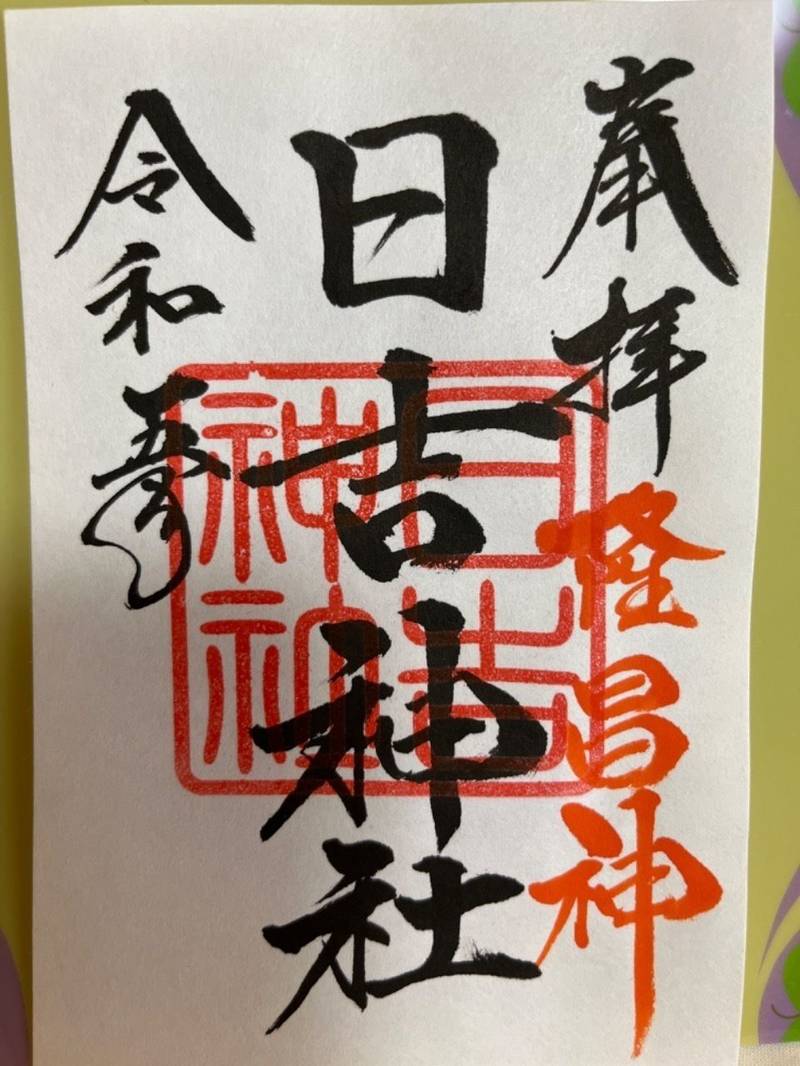 奉拝
隆昌神
日吉神社
日吉
神社
令和